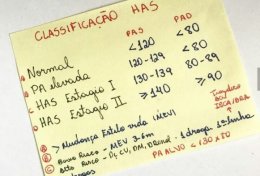 CLASSIFICAÇÃO HAS
PAS PAD
Normal <120 <80
PA elevada 120-129 <80
HAS Estagio I 130-139 80-89
HAS Estagio II ≥140 ≥90
BCC
IECA/BRA
Mudança Estilo vida (MEV)
Baixo Risco - MEV 3-6m
Alto Risco - Dç CV, DM, DRenal - 1 droga 1ª linha
PA ALVO < 130 x 80